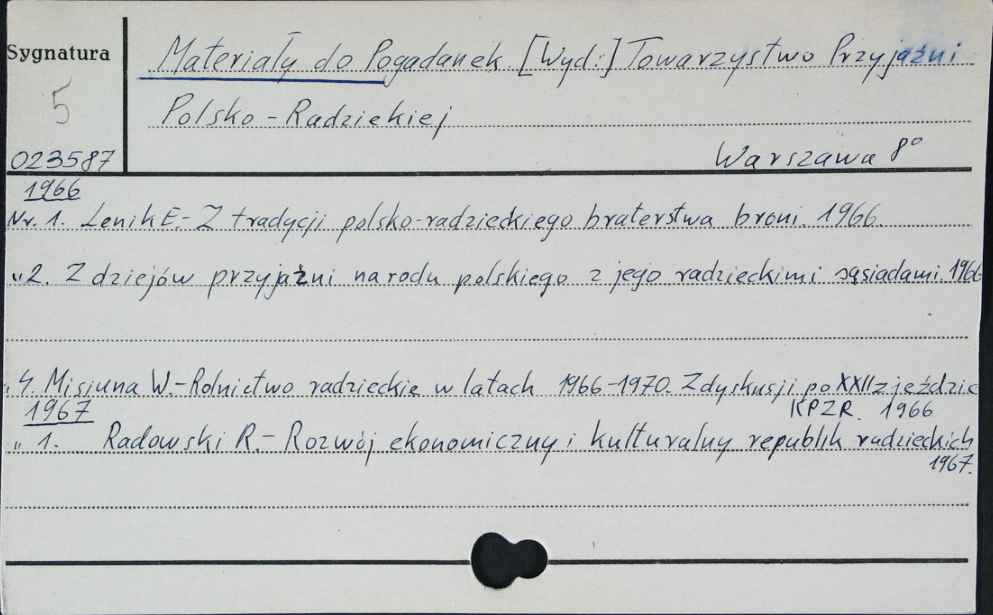 Sygnatura
5
023587
Materiały do Pogadanek. [Wyd:] Towarzystwo Przyjaźni
Polsko-Radziekiej
Warszawa 8°
1966
Nr. 1. Lenik E.- Z tradycji polsko-radzieckiego braterstwa broni. 1966
„2. Z dziejów przyjaźni narodu polskiego z jego radzieckimi sąsiadami. 1966
„4. Misiuna W.- Rolnictwo radzieckie w latach 1966-1970. Z dyskusji po XXII zjeździe
KPZR. 1966
1967
„ 1. Radowski R.- Rozwój ekonomiczny i kulturalny republik radzieckich
1967.